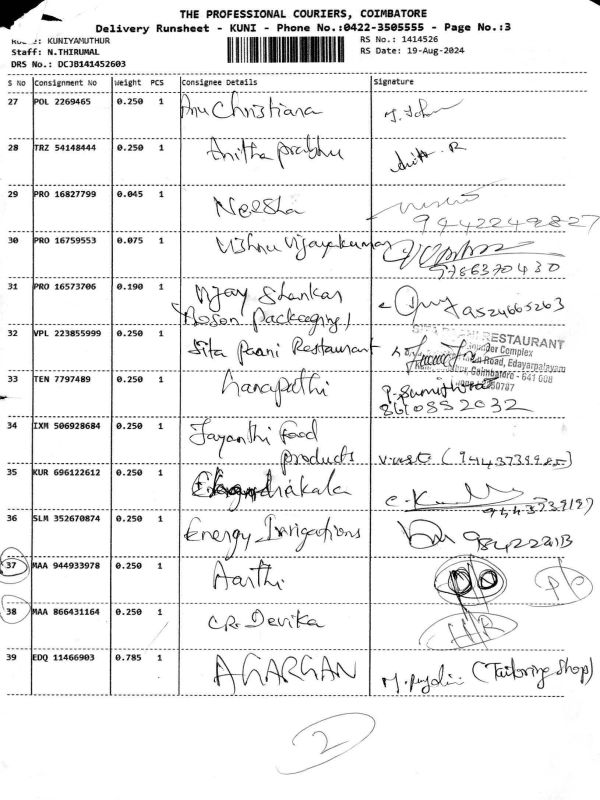 THE PROFESSIONAL COURIERS, COIMBATORE
Delivery Runsheet - KUNI - Phone No.:0422-3505555 - Page No.:3
KUNIYAMUTHUR
RS No.: 1414526
Staff: N.THIRUMAL
RS Date: 19-Aug-2024
DRS No.: DCJB141452603
S No Consignment No Weight PCS Consignee Details Signature
27 POL 2269465 0.250 1 Anu Christiana
28 TRZ 54148444 0.250 1 Anitha prabhu
29 PRO 16827799 0.045 1 Neesha
30 PRO 16759553 0.075 1 Vishnu Vijayakumar
9786370430
31 PRO 16573706 0.190 1 Vijay Shankar
32 VPL 223855999 0.250 1 Sita Paani Restaurant
RESTAURANT
Complex
Road, Edayarpalayam
Coimbatore - 641 008
33 TEN 7797489 0.250 1 Ganapathi P. Sumithra
8610552032
34 IXM 506928684 0.250 1 Jayanthi food
products
35 KUR 696122612 0.250 1
36 SLM 352670874 0.250 1 Energy Irrigations
37 MAA 944933978 0.250 1 Aarthi
38 MAA 866431164 0.250 1 C.R. Devika
39 EDQ 11466903 0.785 1 AGARGAN (Tailoring Shop)
2